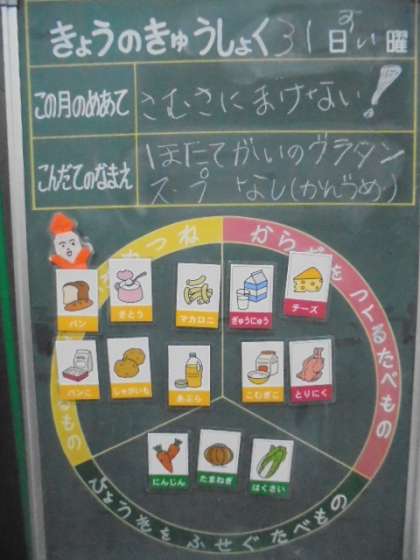 きょうのきゅうしょく 31日 すい曜
この月のめあて さむさにまけない!
こんだてのなまえ ほたてがいのグラタン
スープ なし(かんづめ)
ねつ
からだをつくるたべもの
パン さとう マカロニ ぎゅうにゅう チーズ
パンこ じゃがいも あぶら こむぎこ とりにく
るもの
にんじん たまねぎ はくさい
びょうきをふせぐたべもの